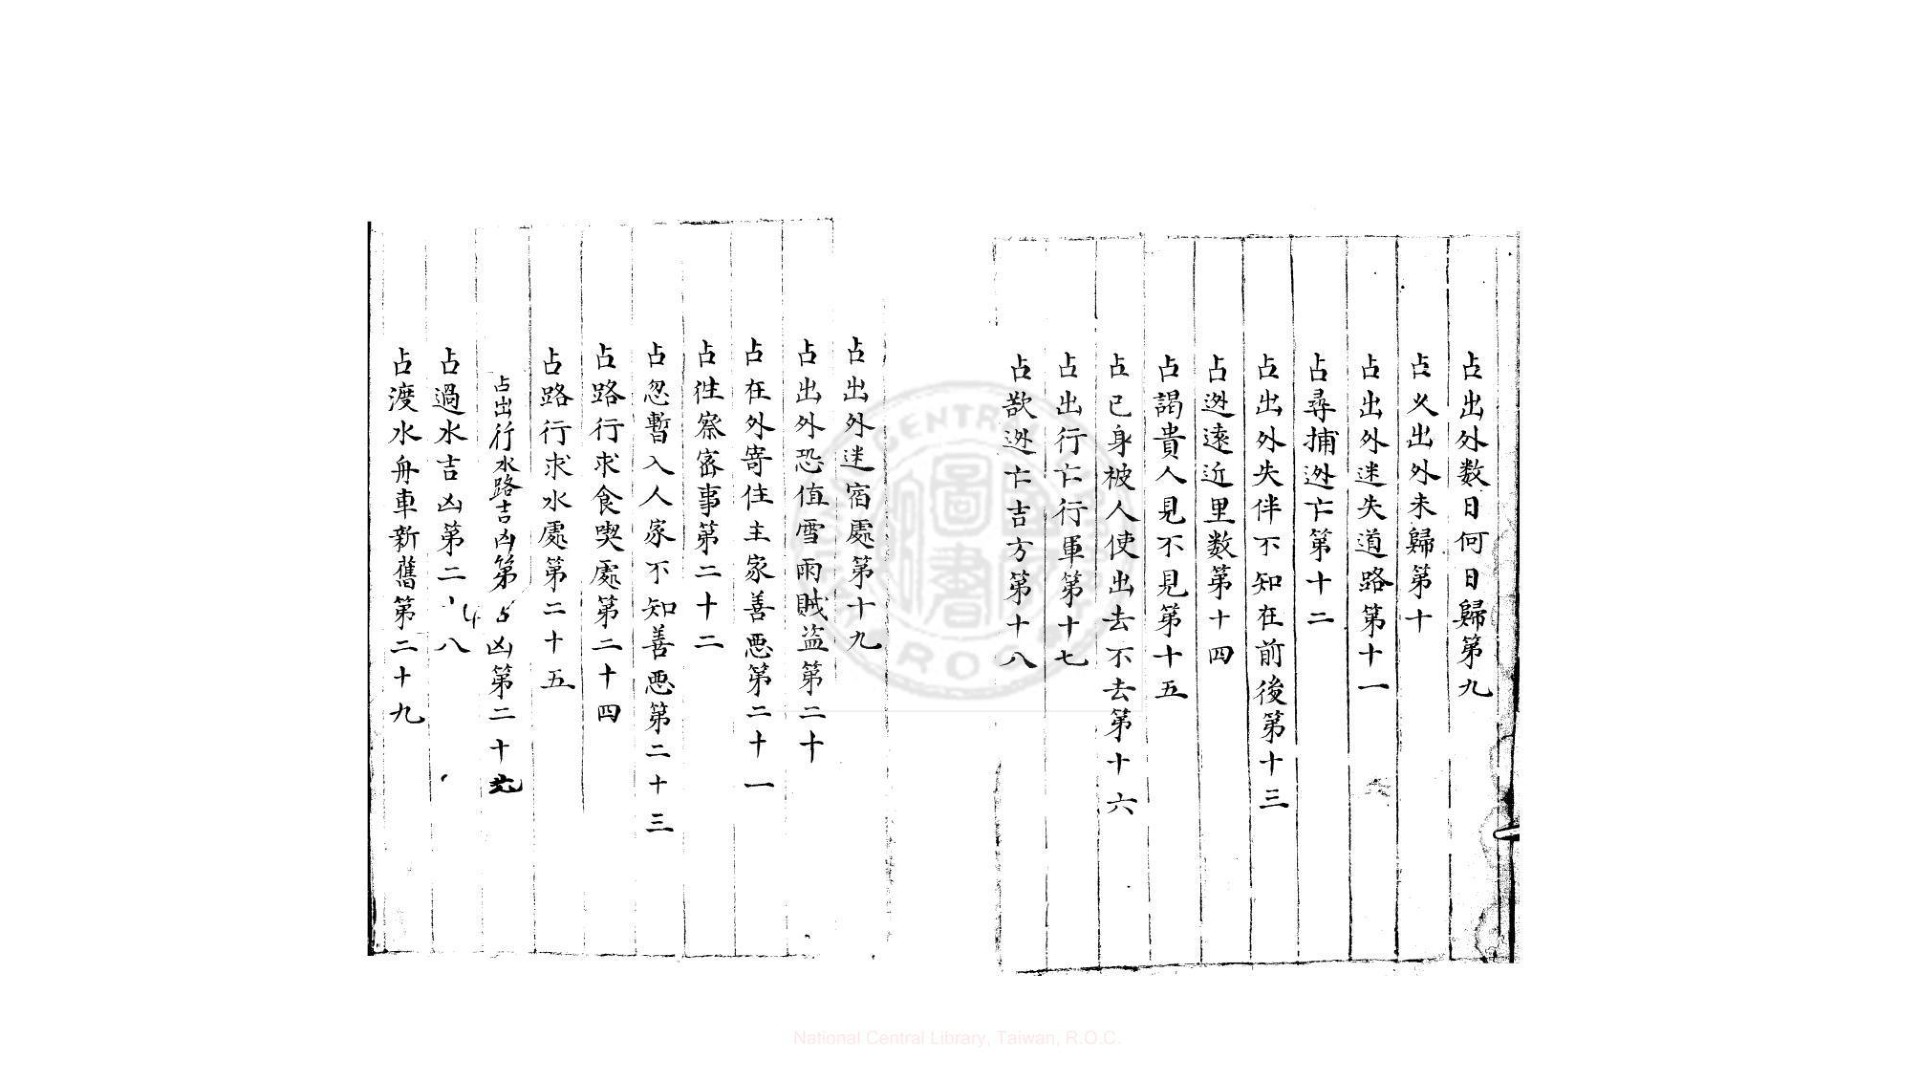 占出外数日何日歸第九
占乆出外未歸第十
占出外迷失道路第十一
占尋捕迯亡第十二
占出外失伴不知在前後第十三
占迯遠近里数第十四
占謁貴人見不見第十五
占已身被人使出去不去第十六
占出行亡行軍第十七
占欲迯亡吉方第十八
占出外迷宿處第十九
占出外恐值雪雨賊盗第二十
占在外寄住主家善悪第二十一
占徃察宻事第二十二
占忽暫入人家不知善悪第二十三
占路行求食喫處第二十四
占路行求水處第二十五
占出行水路吉凶第 凶第二十
占過水吉凶第二十八
占渡水舟車新舊第二十九
National Central Library, Taiwan, R.O.C.